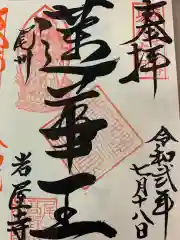 奉拝
令和二年
七月十八日
蓮華王
尾州
岩屋寺